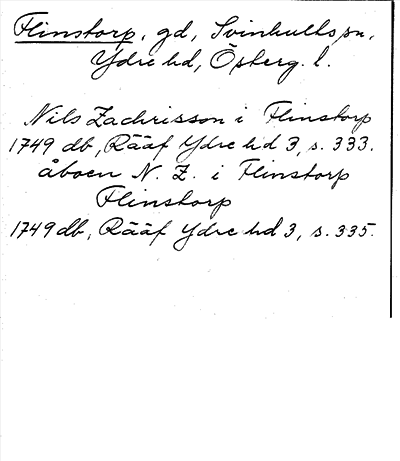 Flinstorp, gd, Svinhults sn,
Ydre hd, Österg. l.
Nils Zachrisson i Flinstorp
1749 db, Rääf Ydre hd 3, s. 333.
åboen N. Z. i Flinstorp
Flinstorp
1749 db, Rääf Ydre hd 3, s. 335.